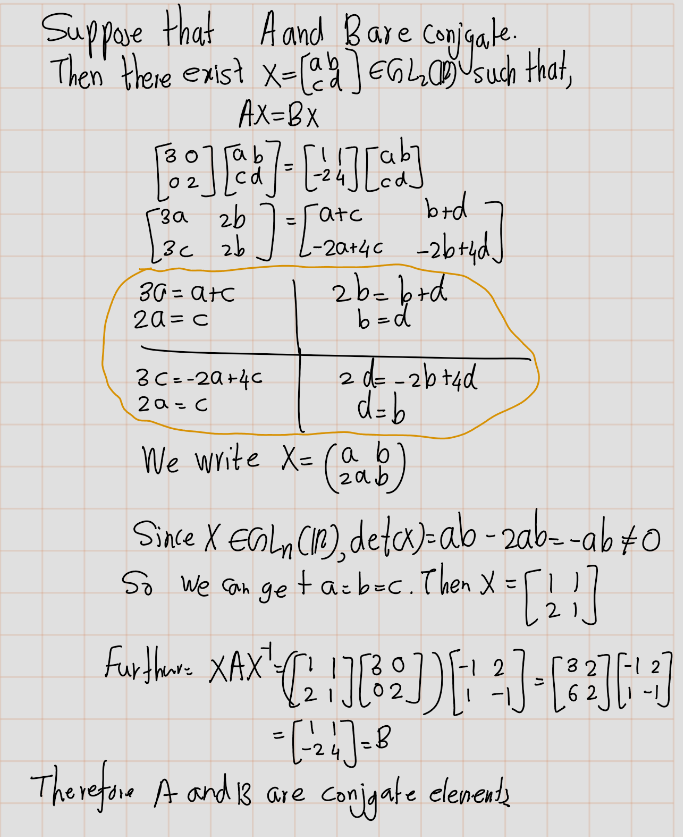 Suppose that A and B are conjgate.
Then there exist X=[a b c d] ∈ GL₂(ℝ) such that,
AX=BX
[3 0 0 2][a b c d]=[1 1 -2 4][a b c d]
[3a 2b 3c 2b]=[a+c b+d -2a+4c -2b+4d]
3a=a+c 2b=b+d
2a=c b=d
3c=-2a+4c 2d=-2b+4d
2a=c d=b
We write X=(a b 2a b)
Since X ∈ GLn(ℝ), det(x)=ab-2ab=-ab≠0
So we can get a=b=c. Then X=[1 1 2 1]
Further XAX⁻¹=([1 1 2 1][3 0 0 2])[-1 2 1 -1]=[3 2 6 2][-1 2 1 -1]
=[1 1 -2 4]=B
Therefore A and B are conjgate elements